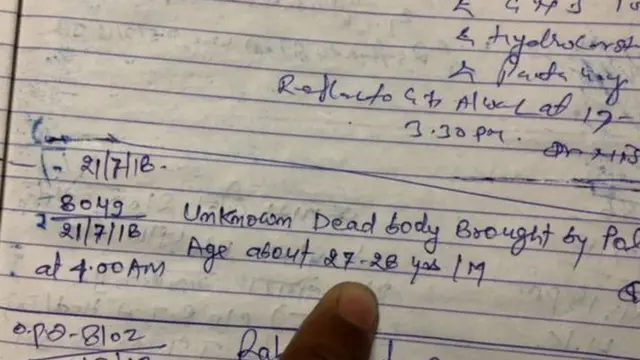 & Hydrocort
&
Refer to G.H Alwar at 19-
3.30 pm.
21/7/18.
8049
21/7/18
Unknown Dead body Brought by Pol
Age about 27-28 yrs / M
at 4.00 AM
O.P.D-8102